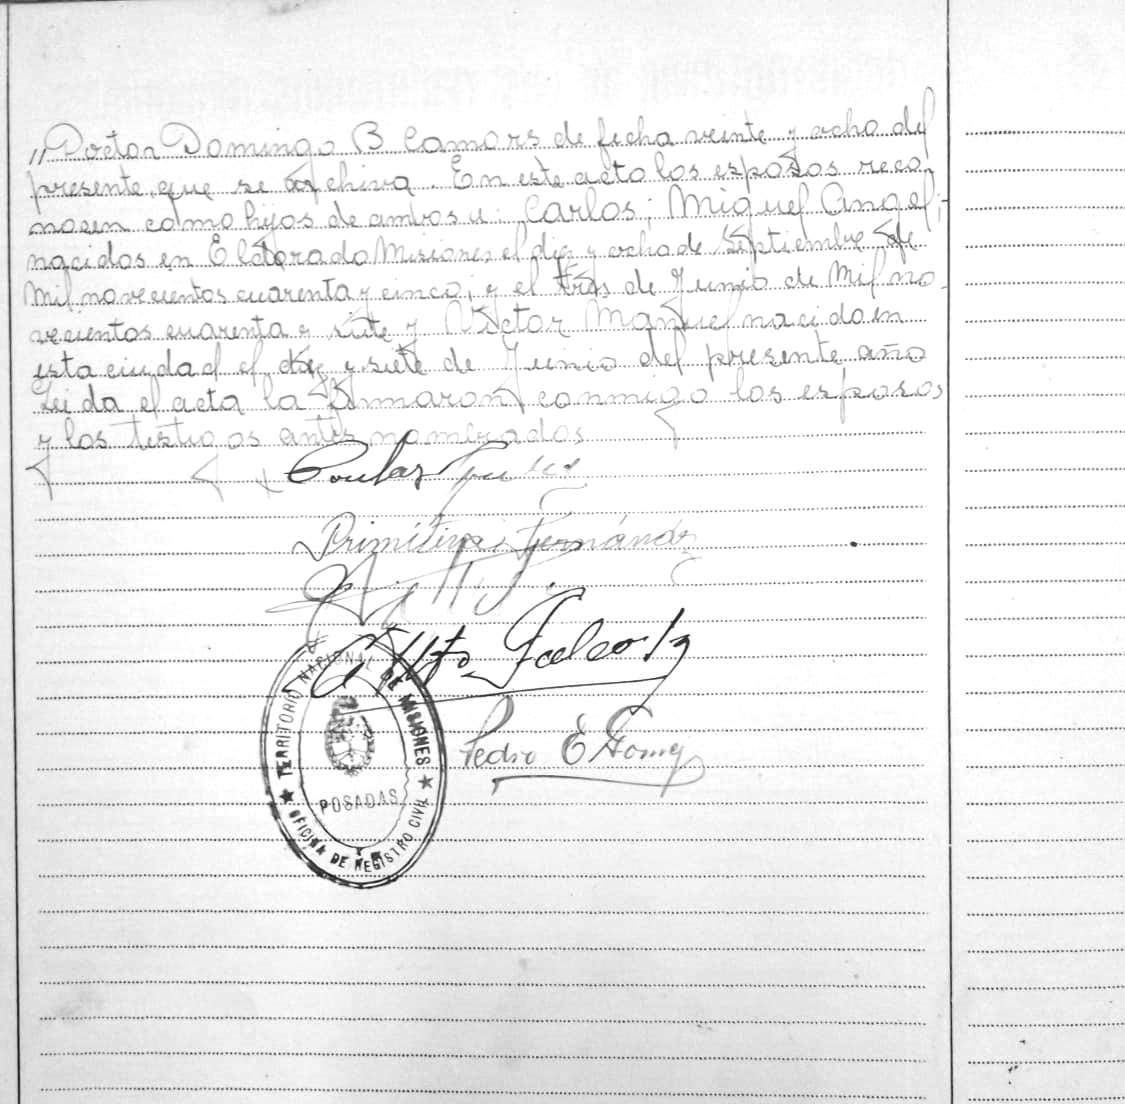 "Doctor Domingo B Camors de fecha veinte y ocho del
presente, que se archiva. En este acto los esposos reco-
nocen como hijos de ambos a: Carlos; Miguel Angel;
nacidos en Eldorado Misiones el diez y ocho de Septiembre de
Mil novecientos cuarenta y cinco, y el tres de Junio de Mil no-
vecientos cuarenta y siete y Victor Manuel nacido en
esta ciudad el diez y siete de Junio del presente año
Leida el acta la firmaron conmigo los esposos
y los testigos antes nombrados
Primitiva Fernández
Pedro E Gomez
TERRITORIO NACIONAL DE MISIONES
POSADAS
OFICINA DE REGISTRO CIVIL